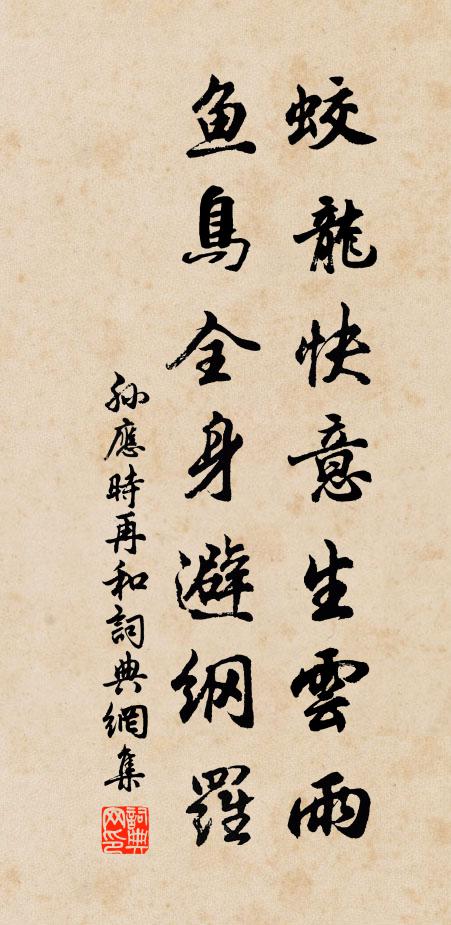 蛟龍快意生雲雨
鱼鳥全身避網羅
孙應時再和詞典網集
詞典网印